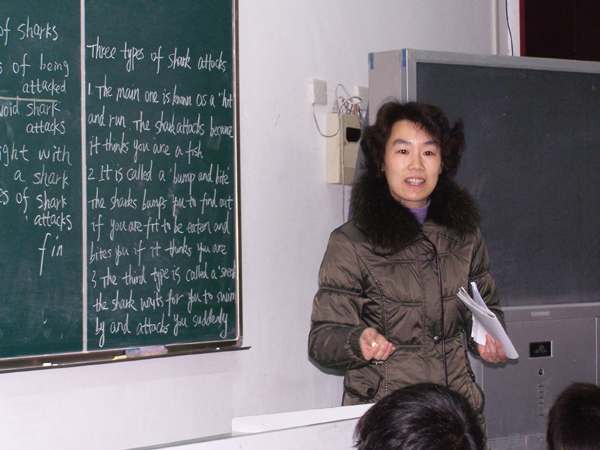 of sharks
s of being
attacked
void shark
attacks
ight with
a shark
es of shark
attacks
fin
Three types of shark attacks
1. The main one is known as a "hit
and run. The shark attacks because
it thinks you are a fish
2. It is called a "bump and bite"
The sharks bumps you to find out
if you are fit to be eaten and
bites you if it thinks you are
3. The third type is called a "sneak
the shark waits for you to swim
by and attacks you suddenly